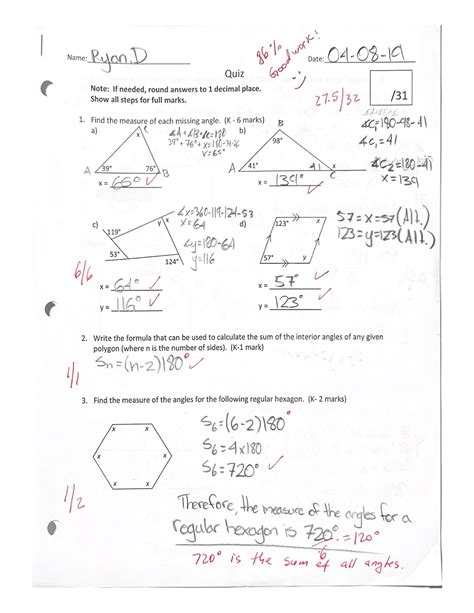 Name: Ryan.D
86% Good work! :)
Date: 04-08-19
Quiz
Note: If needed, round answers to 1 decimal place.
Show all steps for full marks.
27.5/32
/31
1. Find the measure of each missing angle. (K - 6 marks)
a)
C
x
A 39° 76° B
39° + 76° + x = 180
x = 65°
x = 65° ✓
b)
B
98°
A 41° 41 C x
∡C₁=180-98-41
∡C₁=41
∡C₂=180-41
x=139
x = 139° ✓
c)
119° y x
53° 124°
∡x=360-119-124-53
x=64
∡y=180-64
y=116
x = 64° ✓
y = 116° ✓
d)
123° x
57° y
57=x=57(Alt.)
123=y=123(Alt.)
x = 57° ✓
y = 123° ✓
6/6
2. Write the formula that can be used to calculate the sum of the interior angles of any given
polygon (where n is the number of sides). (K-1 mark)
Sn=(n-2)180° ✓
1/1
3. Find the measure of the angles for the following regular hexagon. (K- 2 marks)
x x
x x
x x
S6=(6-2)180°
S6=4x180
S6=720° ✓
1/2
Therefore, the measure of the angles for a
regular hexagon is 720°. =120°
6
720° is the sum of all angles.